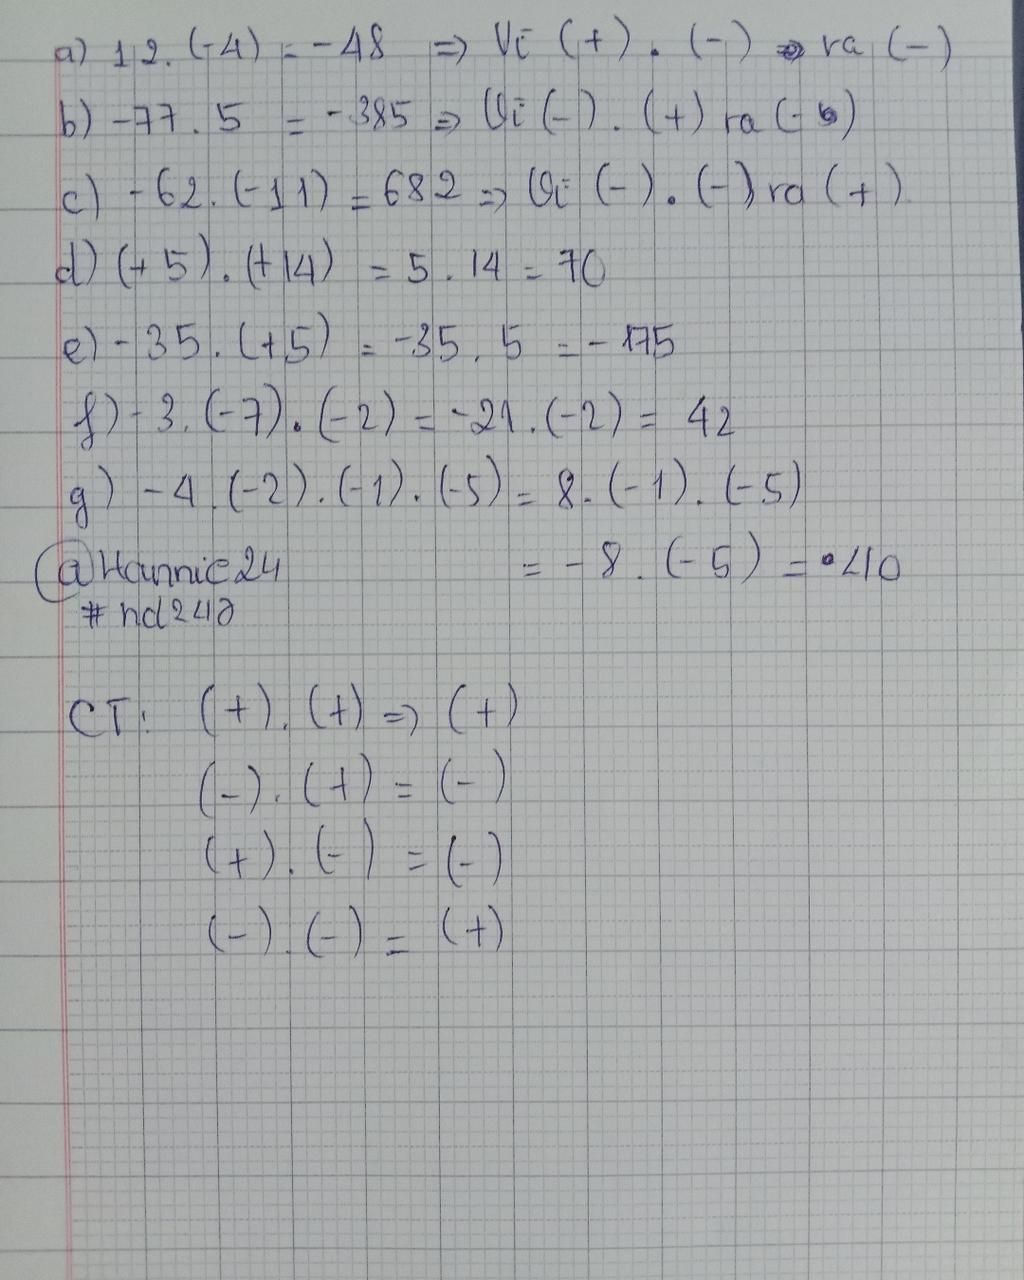 a) 12. (-4) = -48 => Vì (+) . (-) ra (-)
b) -77 . 5 = -385 => Vì (-) . (+) ra (-)
c) -62. (-11) = 682 => Vì (-) . (-) ra (+)
d) (+5) . (+14) = 5 . 14 = 70
e) -35. (+5) = -35. 5 = -175
f) -3. (-7) . (-2) = -21. (-2) = 42
g) -4. (-2) . (-1) . (-5) = 8. (-1) . (-5)
= -8. (-5) = 40
@Hannie24
CT: (+). (+) => (+)
(-). (+) = (-)
(+). (-) = (-)
(-). (-) = (+)